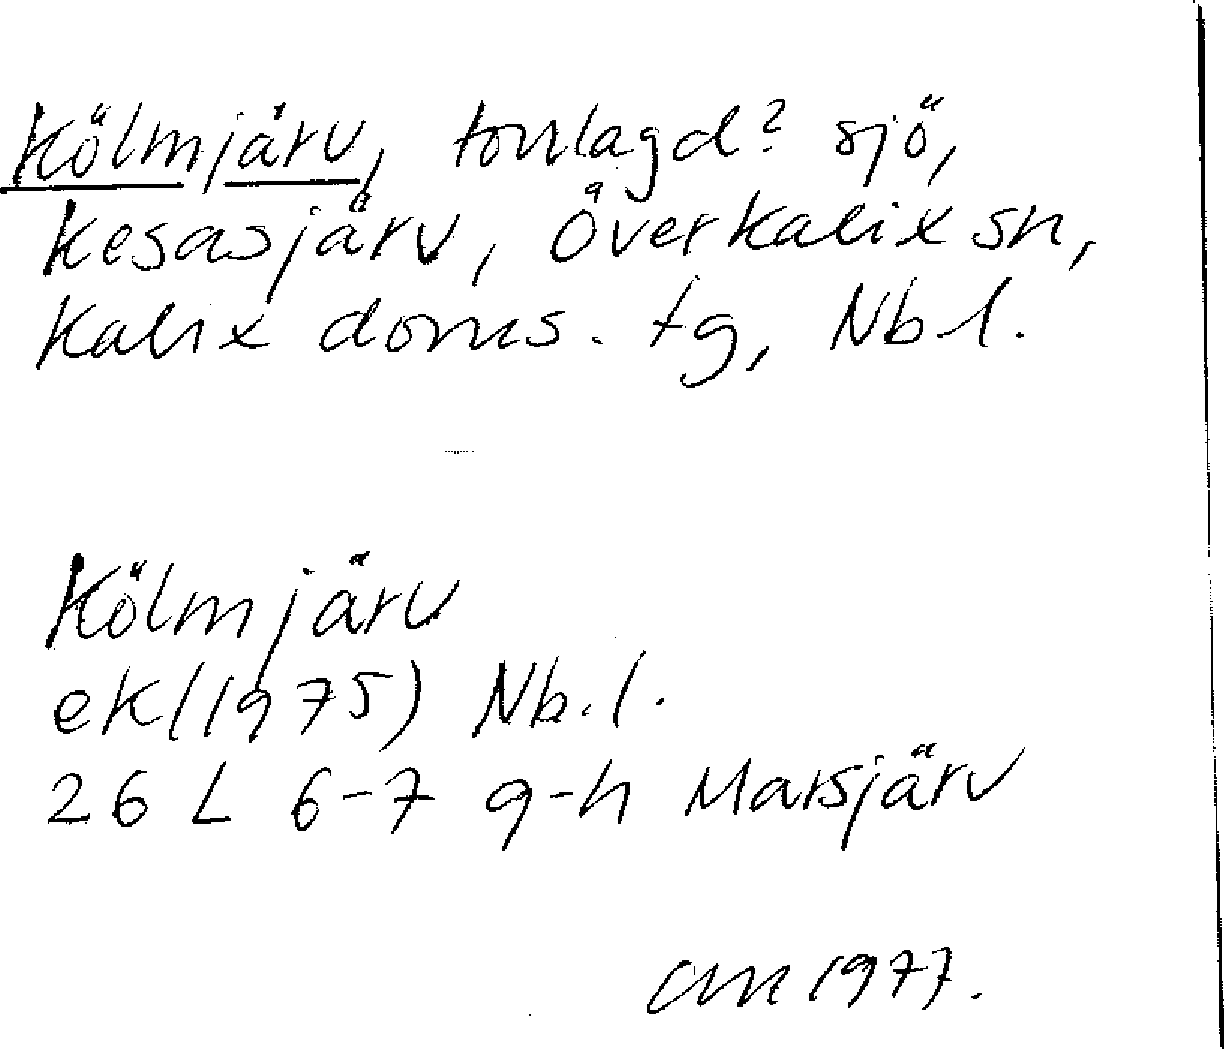 Kölmjärv, torrlagd? sjö,
Kesasjärv, Överkalix sn,
Kalix doms. tg, Nb l.
Kölmjärv
ek (1975) Nb. l.
26 L 6-7 g-h Marsjärv
1977.